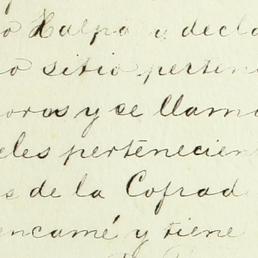 o Xalpa y decla
o sitio perten
oros y se llama
eles pertenecien
s de la Cofrad
encamé y tiene